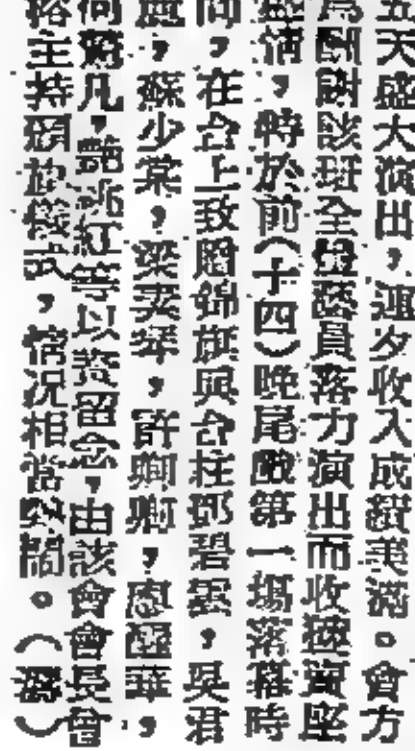 五天盛大演出，連夕收入成績美滿。會方
為酬謝該班全體藝員落力演出而收極賣座
盛情，特於前（十四）晚尾戲第一場落幕時
間，在台上致贈錦旗與台柱鄧碧雲，吳君
麗，蘇少棠，梁素琴，許卿卿，鳳醒華，
何驚凡，艷桃紅等以資留念，由該會會長曾
榕主持頒旗儀式，情况相當熱鬧。（